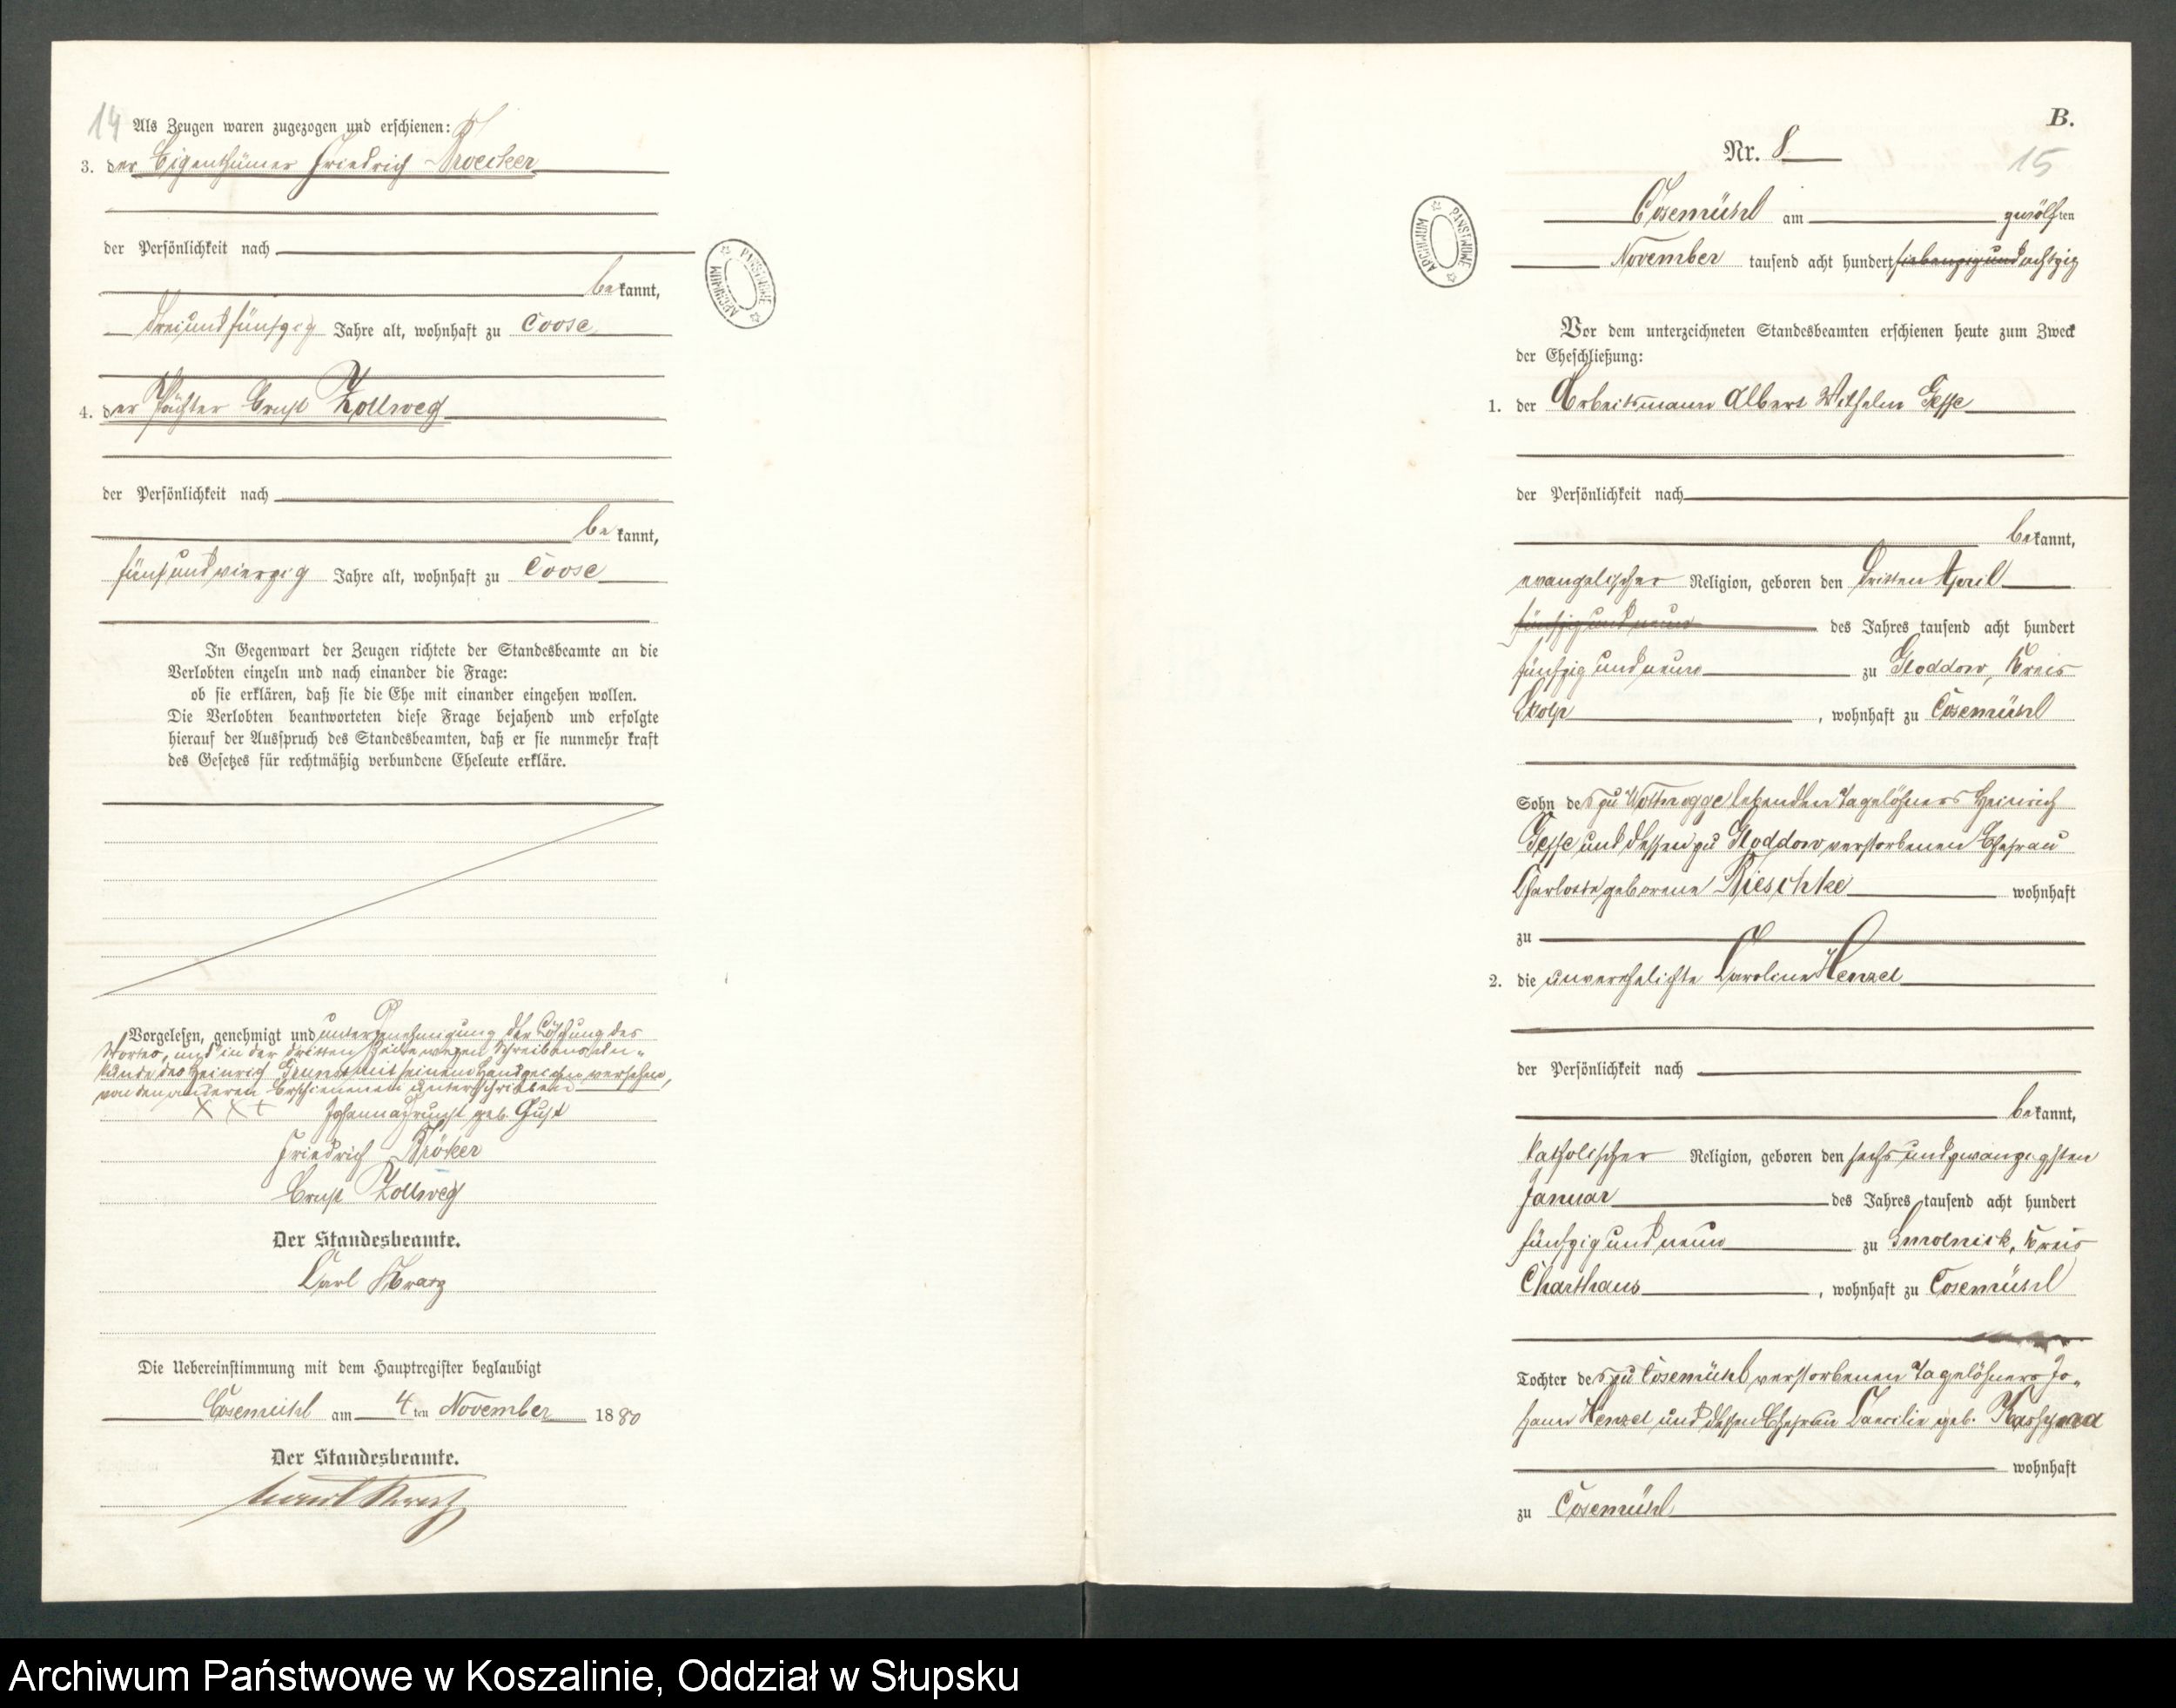 14
Als Zeugen waren zugezogen und erschienen:
3. der Eigenthümer Friedrich Kroecker
der Persönlichkeit nach
bekannt,
dreiundfünfzig Jahre alt, wohnhaft zu Coose
4. der Pächter Ernst Zollweg
der Persönlichkeit nach
bekannt,
fünfundvierzig Jahre alt, wohnhaft zu Coose
In Gegenwart der Zeugen richtete der Standesbeamte an die
Verlobten einzeln und nach einander die Frage:
ob sie erklären, daß sie die Ehe mit einander eingehen wollen.
Die Verlobten beantworteten diese Frage bejahend und erfolgte
hierauf der Ausspruch des Standesbeamten, daß er sie nunmehr kraft
des Gesetzes für rechtmäßig verbundene Eheleute erkläre.
Vorgelesen, genehmigt und unter Genehmigung der Löschung des
Wortes, und in der dritten Zeile wegen Schreibensun-
kunde des Heinrich mit seinem Handzeichen versehen,
von den anderen Erschienenen unterschrieben
X X X Johanna geb. Gust
Friedrich Kröker
Ernst Zollweg
Der Standesbeamte.
Carl
Die Uebereinstimmung mit dem Hauptregister beglaubigt
Cosemühl am 4 ten November 1880
Der Standesbeamte.
B.
Nr. 8
15
Cosemühl am zwölften
November tausend acht hundert siebenzig und achtzig
Vor dem unterzeichneten Standesbeamten erschienen heute zum Zweck
der Eheschließung:
1. der Arbeitsmann Albert Wilhelm Geffe
der Persönlichkeit nach
bekannt,
evangelischer Religion, geboren den dritten April
fünfzig und neun des Jahres tausend acht hundert
fünfzig und neun zu Gloddow, Kreis
Stolp, wohnhaft zu Cosemühl
Sohn des zu Wottnogge lebenden Tagelöhners Heinrich
Geffe und dessen zu Gloddow verstorbenen Ehefrau
Charlotte geborene Rieschke wohnhaft
zu
2. die unverehelichte Caroline Henzel
der Persönlichkeit nach
bekannt,
katholischer Religion, geboren den sechsundzwanzigsten
Januar des Jahres tausend acht hundert
fünfzig und neun zu Smolnick, Kreis
Charthaus, wohnhaft zu Cosemühl
Tochter des zu Cosemühl verstorbenen Tagelöhners Jo-
hann Henzel und dessen Ehefrau Caecilie geb.
wohnhaft
zu Cosemühl
ARCHIWUM PAŃSTWOWE
ARCHIWUM PAŃSTWOWE
Archiwum Państwowe w Koszalinie, Oddział w Słupsku